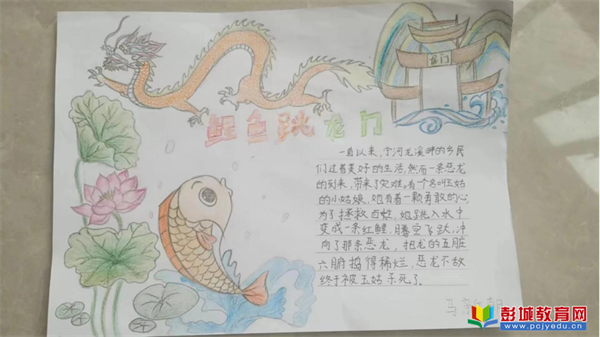 鲤鱼跳龙门
龙门
一直以来,个河龙溪畔的乡民
们过着美好的生活,然而一条恶龙
的到来,带来了灾难。有个名叫玉姑
的小姑娘,她有着一颗勇敢的心
为了拯救百姓,她跳入水中
变成一条红鲤,腾空飞跃,冲
向了那条恶龙,把龙的五脏
六腑捣得稀烂,恶龙不敌
终于被玉姑杀死了。
马
彭城教育网
www.pcjyedu.cn